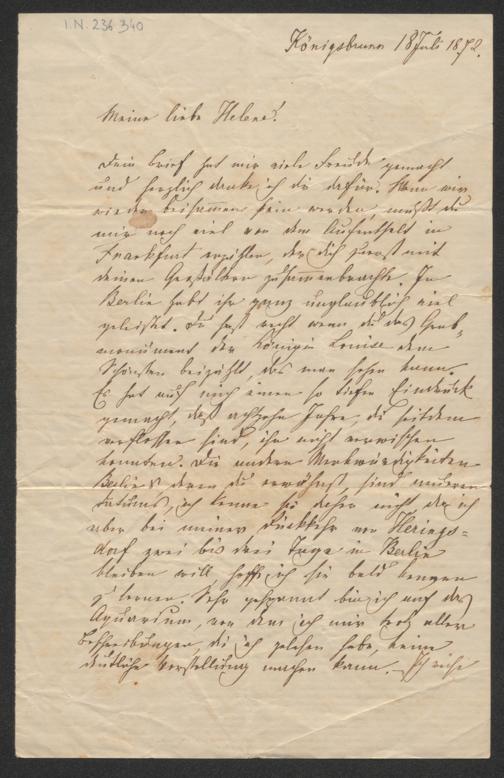 I.N. 236.340
Königsbrunn 18 Juli 1872.
Meine liebe Helene!
Dein Brief hat mir viele Freude gemacht
und herzlich danke ich dir dafür. Wenn wir
wieder beisammen sein werden, mußt du
mir noch viel von dem Aufenthalt in
Frankfurt erzählen, der dich zuerst mit
deinen Großältern zusammenbrachte. In
Berlin habt ihr ganz unglaublich viel
geleistet. Du hast recht wenn du das Grab-
monument der Königin Louise dem
Schönsten beizählst das man sehen kann.
Es hat auch mir einen so tiefen Eindruck
gemacht, daß achtzehn Jahre, die seitdem
verflossen sind, ihn nicht verwischen
konnten. Die andern Merkwürdigkeiten
Berlins deren du erwähnst, sind neueren
Datums, ich kenne sie daher nicht da ich
aber bei meiner Rückkehr von Herings-
dorf zwei bis drei Tage in Berlin
bleiben will, hoffe ich sie bald kennen
zu lernen. Sehr gespannt bin ich auf das
Aquarium, von dem ich mir trotz aller
Beschreibungen, die ich gelesen habe, keine
deutliche Vorstellung machen kann. Ich